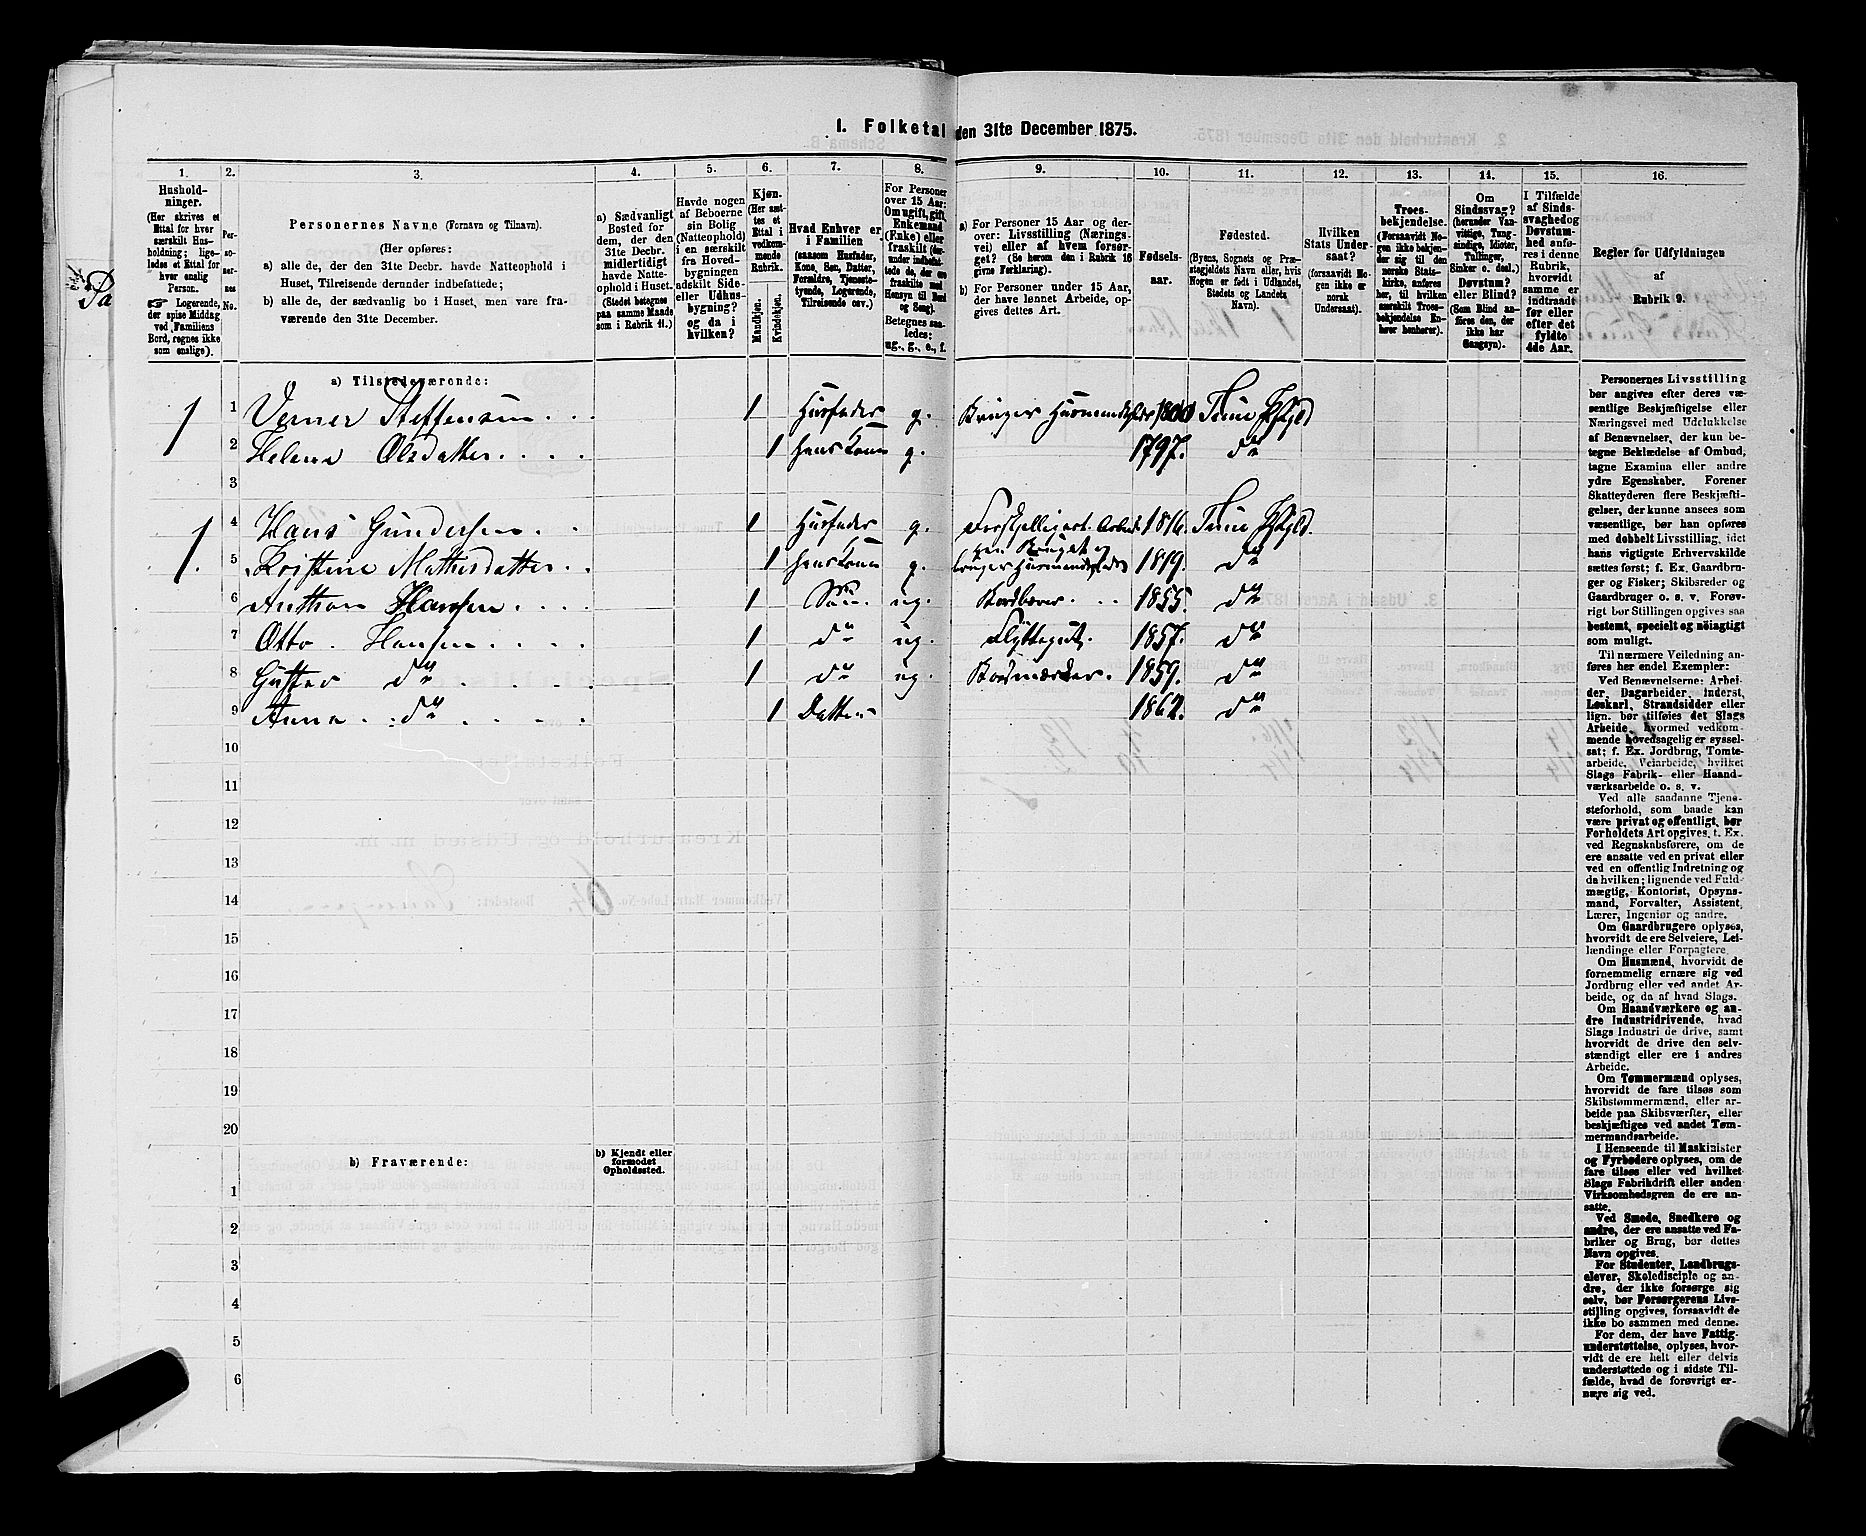 1. Folketal den 31te December 1875.
1. 2. 3. 4. 5. 6. 7. 8. 9. 10. 11. 12. 13. 14. 15. 16.
Hushold-
ninger.
(Her skrives et
Ettal for hver
særskilt Hus-
holdning; lige-
ledes et Ettal for
hver enslig
Person.
☞ Logerende,
der spise Middag
ved Familiens
Bord, regnes ikke
som enslige).
Per-
so-
ner-
nes
No.
Personernes Navne (Fornavn og Tilnavn).
(Her opføres:
a) alle de, der den 31te Decbr. havde Natteophold i
Huset, Tilreisende derunder indbefattede;
b) alle de, der sædvanlig bo i Huset, men vare fra-
værende den 31te December.
a) Sædvanligt
Bosted for
dem, der den
31te Decbr.
midlertidigt
havde Natte-
ophold i Huset.
(Stedet betegnes
paa samme Maade
som i Rubrik 11.)
Havde nogen
af Beboerne
sin Bolig
(Natteophold)
i en særskilt
fra Hoved-
bygningen
adskilt Side-
eller Udhus-
bygning?
og da i
hvilken?
Kjøn.
(Her sæt-
tes et
Ettal i
vedkom-
mende
Rubrik.
Mandkjøn.
Kvindekjøn.
Hvad Enhver er
i Familien
(saasom Husfader,
Kone, Søn, Datter,
Forældre, Tjeneste-
tyende, Logerende,
Tilreisende osv.)
For Personer
over 15 Aar:
Om ugift, gift,
Enkemand
(Enke) eller
fraskilt (der-
under indbefat-
tede de, der ere
fraskilte med
Hensyn til Bord
og Seng).
Betegnes saa-
ledes:
ug., g., e., f.
a) For Personer 15 Aar og der-
over: Livsstilling (Nærings-
vei) eller af hvem forsør-
get? (Se herom den i Rubrik 16
givne Forklaring).
b) For Personer under 15 Aar,
der have lønnet Arbeide, op-
gives dettes Art.
Fødsels-
aar.
Fødested.
(Byens, Sognets og Præ-
stegjeldets Navn eller, hvis
Nogen er født i Udlandet,
Stedets og Landets
Navn).
Hvilken
Stats Under-
saat?
(forsaavidt No-
gen ikke er
norsk
Undersaat).
Troes-
bekjendelse.
(Forsaavidt No-
gen ikke bekjen-
der sig til den
norske Stats-
kirke, anføres
her, til hvilken
særskilt Troes-
bekjendelse En-
hver henhører).
Om
Sindssvag?
(herunder Van-
vittige, Tung-
sindige, Idioter,
Tullinger,
Sinker o. desl.)
Døvstum?
eller Blind?
(Som Blind an-
føres den, der
ikke har
Gangsyn).
I Tilfælde
af Sinds-
svaghed og
Døvstum-
hed anfø-
res i denne
Rubrik,
hvorvidt
samme er
indtraadt
før eller
efter det
fyldte
4de Aar.
Regler for Udfyldningen
af
Rubrik 9.
a) Tilstedeværende:
1 1 Verner Steffensen 1 Husfader g. Bruger Husmandsplds 1800 Tune Pgjld
2 Helene Olsdatter 1 hans Kone g. 1797. do
3
1 4 Hans Gundersen 1 Husfader g. Forskjelligart. Arbeide 1816. Tune Pgjld.
paa Bruget og
1. 5 Kristine Mathisdatter 1 hans Kone g. bruger Husmandsplds 1819. do
6 Anthon Hansen 1 Søn. ug. Bordbærer. 1855. do
7 Otto Hansen 1 do ug. Flyttegut. 1857. do
8 Gustav do 1 do ug. Bordmærker. 1859. do
9 Anna do 1 Datter 1862. do
10
11
12
13
14
15
16
17
18
19
20
b) Fraværende:
b) Kjendt eller
formodet
Opholdssted.
1
2
3
4
5
6
Personernes Livsstilling
bør angives efter deres væ-
sentlige Beskjæftigelse eller
Næringsvei med Udelukkelse
af Benævnelser, der kun be-
tegne Beklædelse af Ombud,
tagne Examina eller andre
ydre Egenskaber. Forener
Skatteyderen flere Beskjæfti-
gelser, der kunne ansees som
væsentlige, bør han opføres
med dobbelt Livsstilling, idet
hans vigtigste Erhvervskilde
sættes først; f. Ex. Gaardbru-
ger og Fisker; Skibsreder og
Gaardbruger o. s. v. Forøv-
rigt bør Stillingen opgives saa
bestemt, specielt og nøiagtigt
som muligt.
Til nærmere Veiledning an-
føres her endel Exempler:
Ved Benævnelserne: Arbei-
der, Dagarbeider, Inderst,
Løskarl, Strandsidder eller
lign. bør tilføies det Slags
Arbeide, hvormed vedkom-
mende hovedsagelig er syssel-
sat; f. Ex. Jordbrug, Tomte-
arbeide, Veiarbeide, hvilket
Slags Fabrik- eller Haand-
værksarbeide o. s. v.
Ved alle saadanne Tjene-
steforhold, som baade kan
være privat og offentligt, bør
Forholdets Art opgives, t. Ex.
ved Regnskabsførere, om de
ere ansatte ved en privat eller
ved en offentlig Indretning og
da hvilken; lignende ved Fuld-
mægtig, Kontorist, Opsyns-
mand, Forvalter, Assistent,
Lærer, Ingeniør og andre.
Om Gaardbrugere oplyses,
hvorvidt de ere Selveiere, Lei-
lændinge eller Forpagtere.
Om Husmænd, hvorvidt de
fornemmelig ernære sig ved
Jordbrug eller ved andet Ar-
beide, og da af hvad Slags.
Om Haandværkere og an-
dre Industridrivende, hvad
Slags Industri de drive, samt
hvorvidt de drive den selv-
stændigt eller ere i andres
Arbeide.
Om Tømmermænd oplyses,
hvorvidt de fare tilsøs som
Skibstømmermænd, eller ar-
beide paa Skibsværfter, eller
beskjæftiges ved andet Tøm-
mermandsarbeide.
I Henseende til Maskinister
og Fyrbødere oplyses, om de
fare tilsøs eller ved hvilket
Slags Fabrikdrift eller anden
Virksomhedsgren de ere an-
satte.
Ved Smede, Snedkere og
andre, der ere ansatte ved Fa-
briker og Brug, bør dettes
Navn opgives.
For Studenter, Landbrugs-
elever, Skoledisciple og an-
dre, der ikke forsørge sig
selv, bør Forsørgerens Livs-
stilling opgives, forsaavidt de
ikke bo sammen med denne.
For dem, der have Fattig-
understøttelse, oplyses, hvor-
vidt de ere helt eller delvis
understøttede og i sidste Til-
fælde, hvad de forøvrigt er-
nære sig ved.